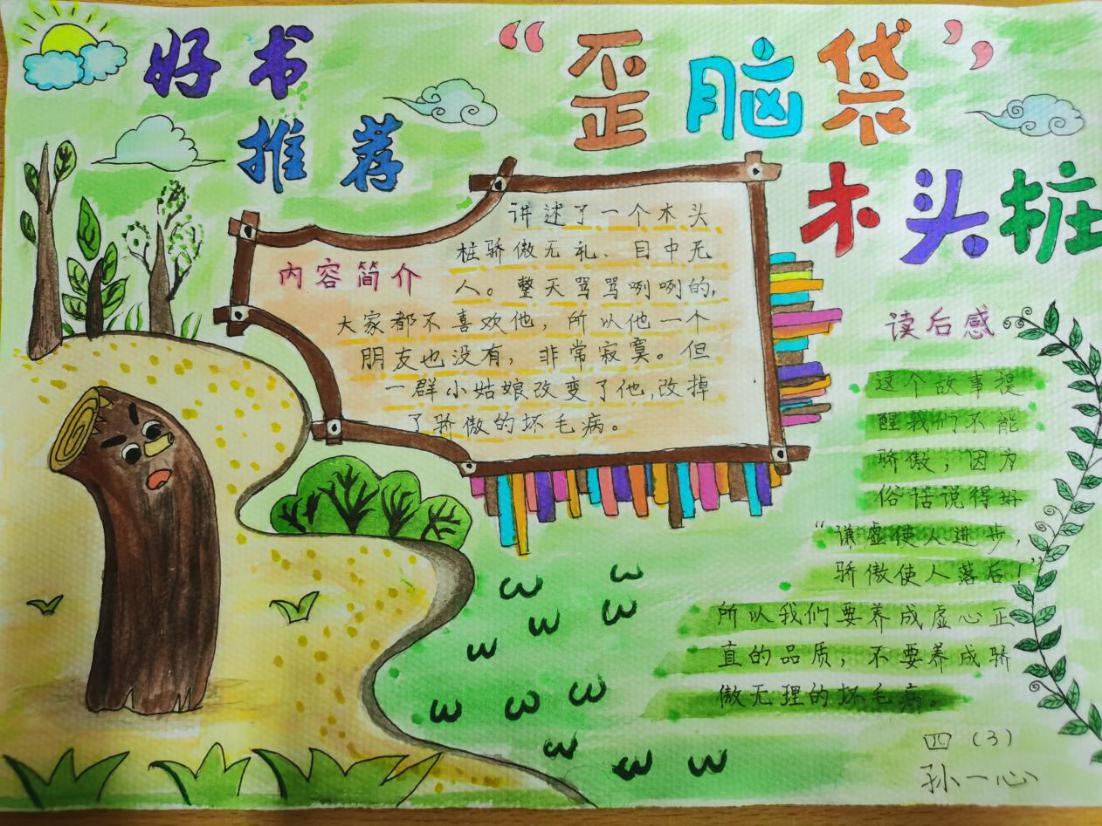 好书
推荐
“歪脑袋”
木头桩
内容简介
讲述了一个木头
桩骄傲无礼、目中无
人。整天骂骂咧咧的,
大家都不喜欢他，所以他一个
朋友也没有，非常寂寞。但
一群小姑娘改变了他,改掉
了骄傲的坏毛病。
读后感
这个故事提
醒我们不能
骄傲，因为
俗话说得好
“谦虚使人进步，
骄傲使人落后！”
所以我们要养成虚心正
直的品质，不要养成骄
傲无理的坏毛病。
四（3）
孙一心